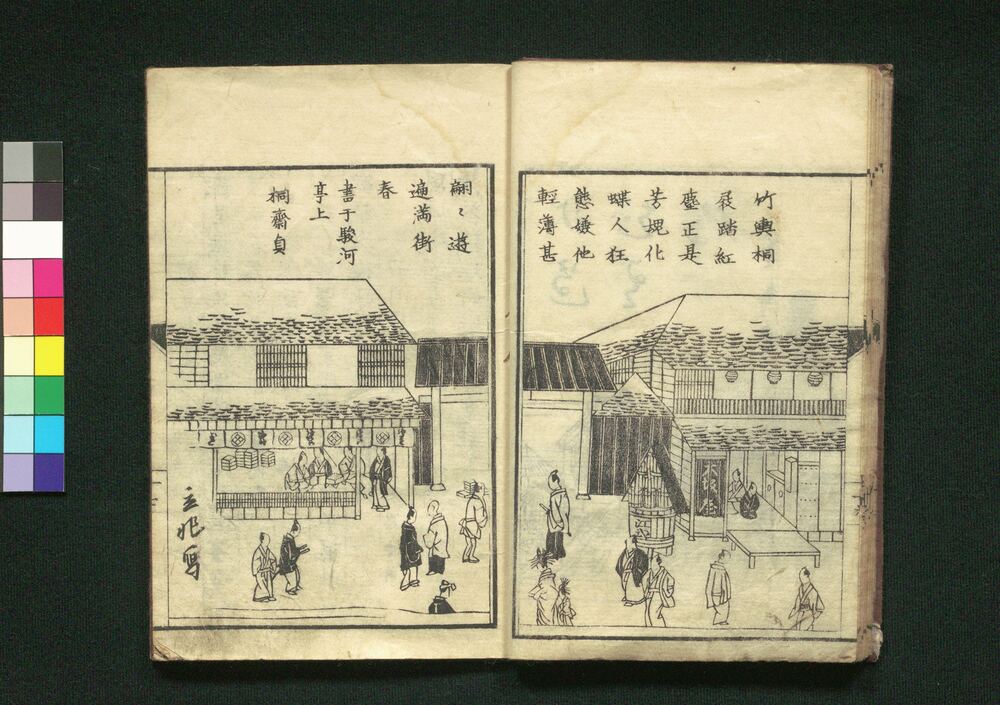 竹輿桐
屐踏紅
塵正是
芳塊化
蝶人狂
態嫌他
輕薄甚
翩〻遊
遍満街
春
書于駿河
亭上
桐齋貞